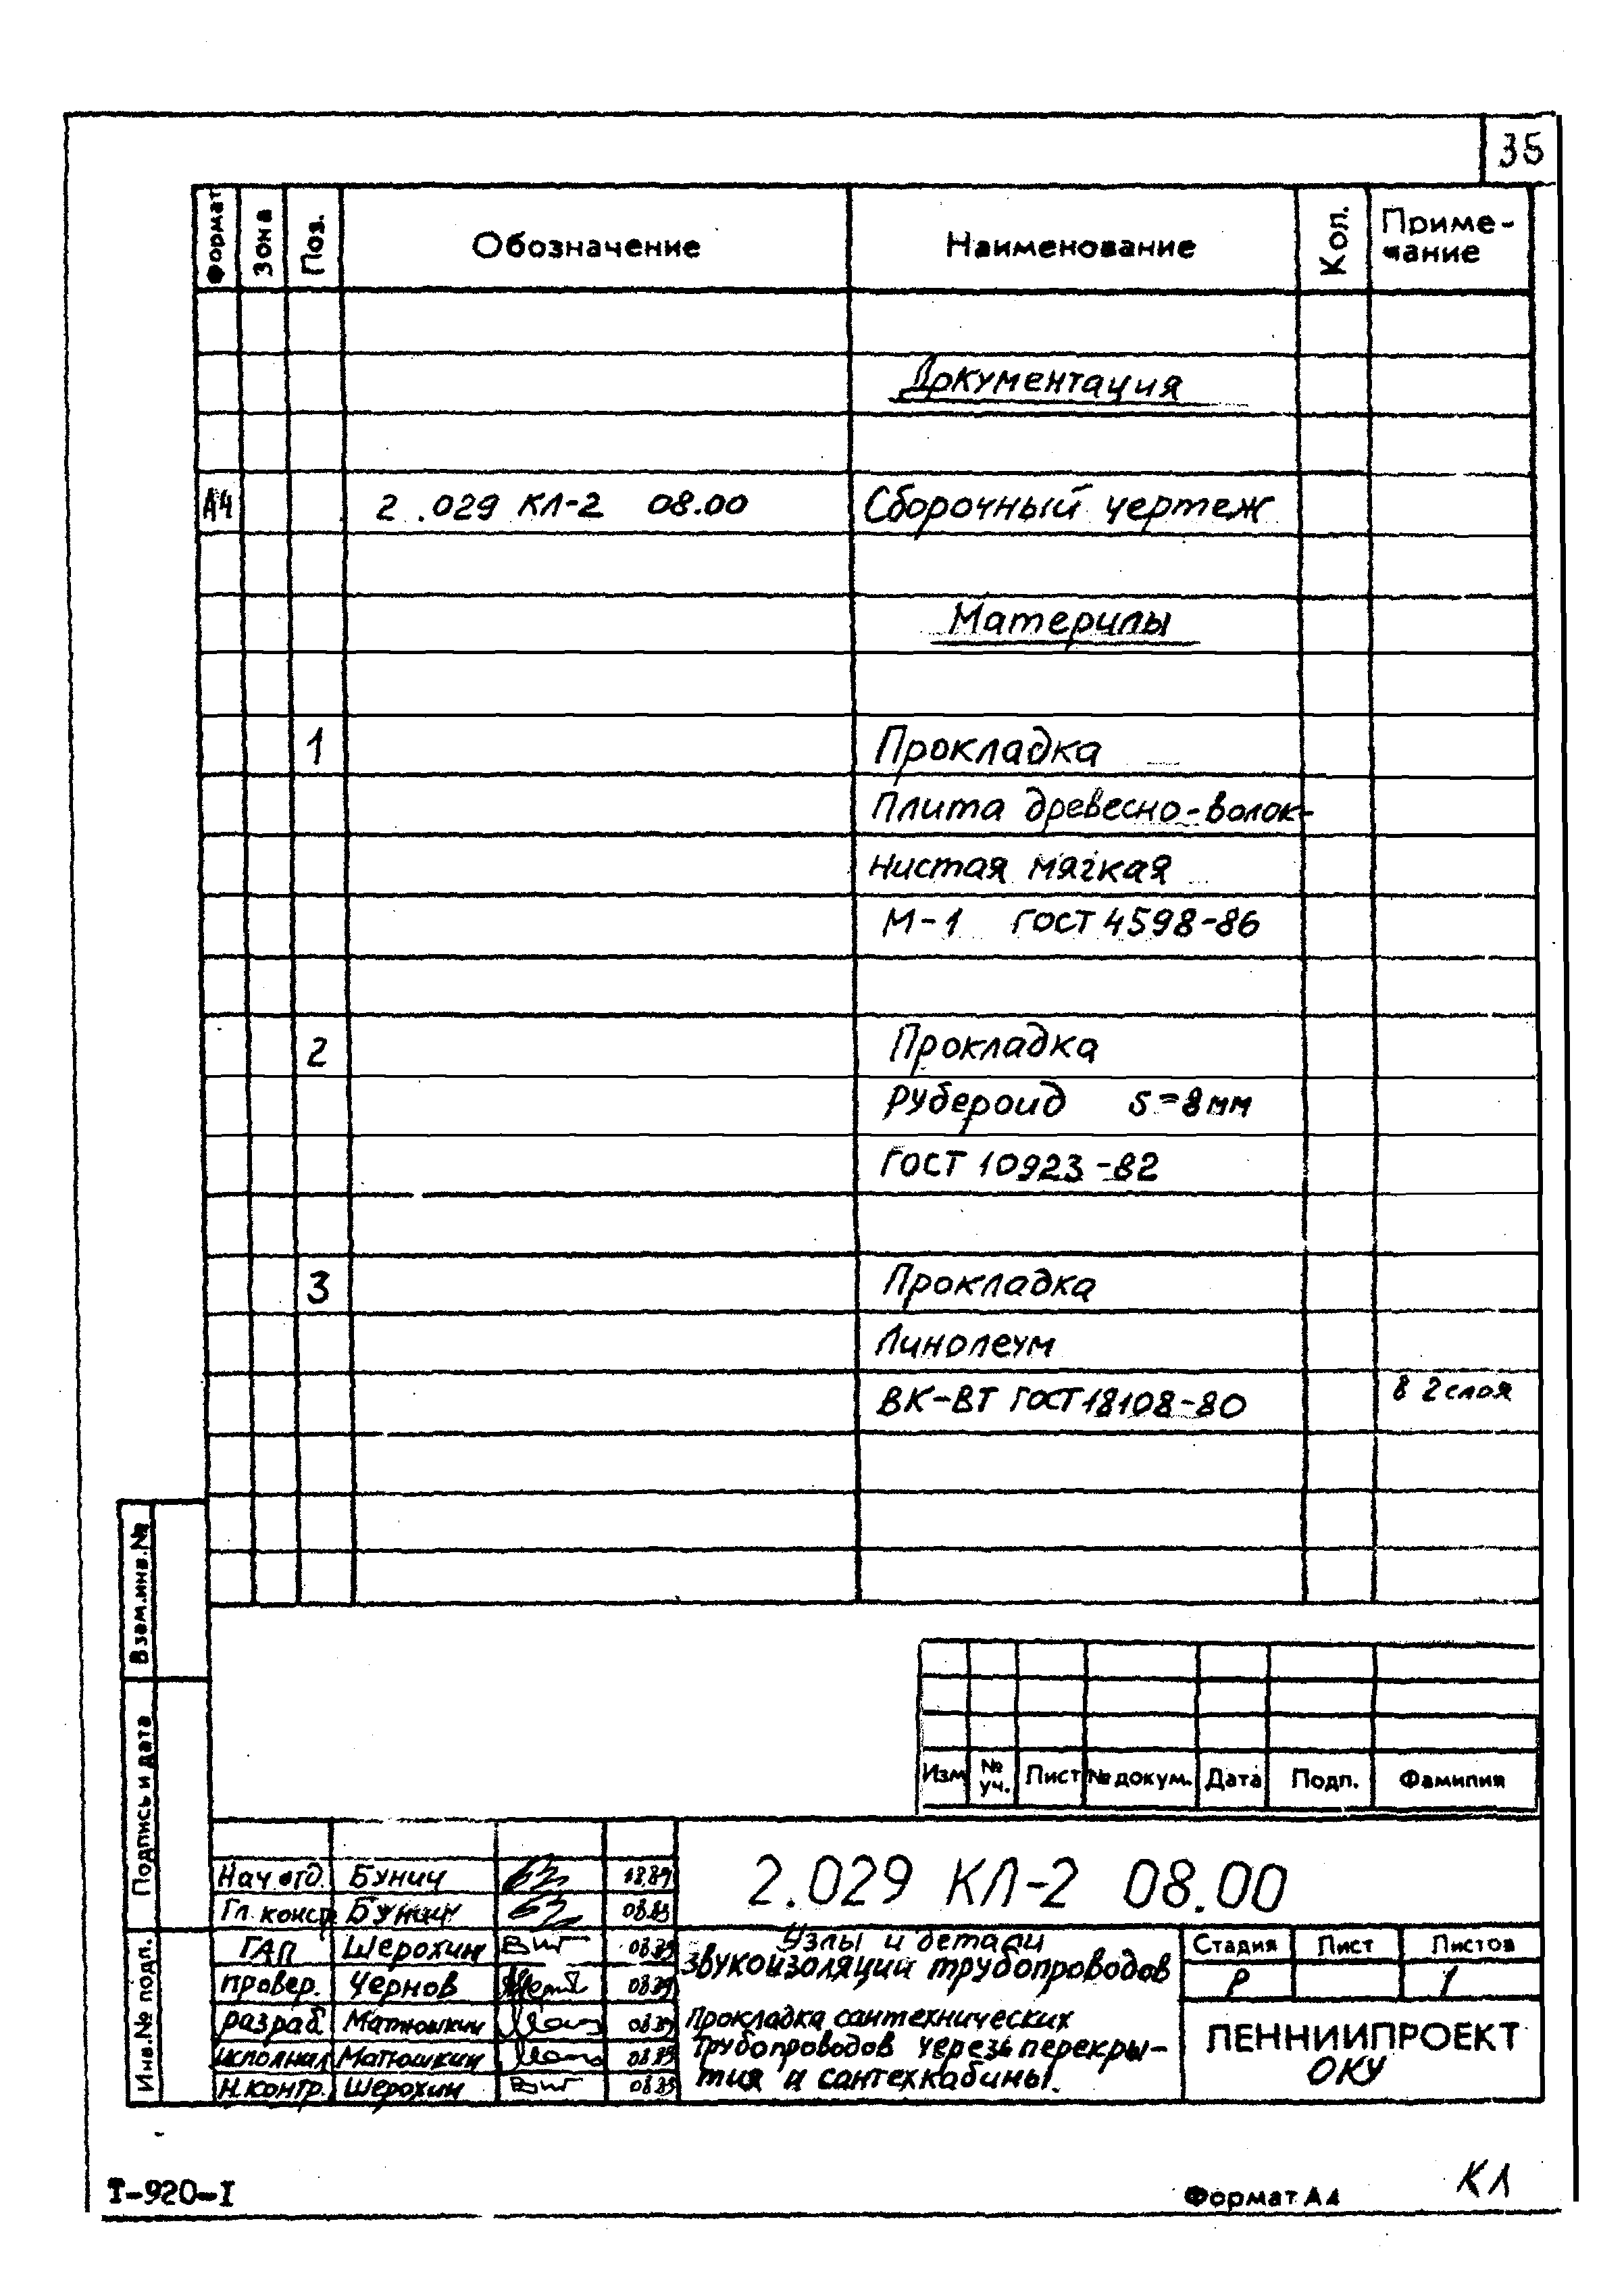 35
Формат Зона Поз. Обозначение Наименование Кол. Приме-
чание
Документация
А4 2 .029 КЛ-2 08.00 Сборочный чертеж
Материлы
1 Прокладка
Плита древесно-волок-
нистая мягкая
М-1 ГОСТ 4598-86
2 Прокладка
Рубероид S=8мм
ГОСТ 10923-82
3 Прокладка
Линолеум
ВК-ВТ ГОСТ 18108-80 в 2 слоя
Взам.инв.№
Подпись и дата
Инв.№ подл.
Изм № уч. Лист № докум. Дата Подп. Фамилия
Нач отд. Бунич 08.89
Гл. констр Бунич 08.89
ГАП Шерохин 08.89
провер. Чернов 08.89
разраб. Матюшкин 08.89
исполнил Матюшкин 08.89
Н.контр. Шерохин 08.89
2.029 КЛ-2 08.00
Узлы и детали
звукоизоляции трубопроводов
Прокладка сантехнических
трубопроводов через перекры-
тия и сантехкабины.
Стадия Лист Листов
Р 1
ЛЕННИИПРОЕКТ
ОКУ
Т-920-I
Формат А4
КЛ